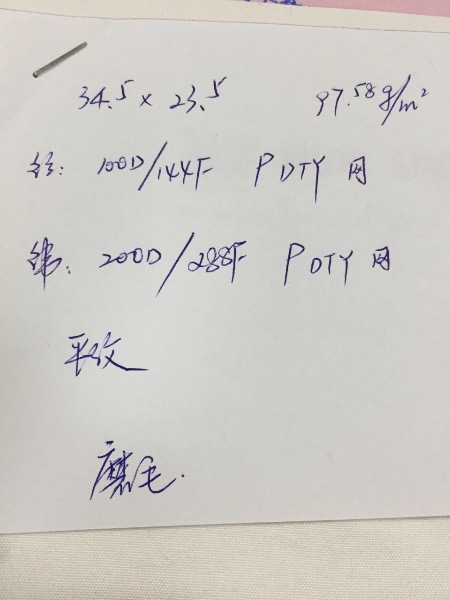 34.5 × 23.5 97.58g/m²
经: 100D/144F PDTY 网
纬: 200D/288F PDTY 网
平纹
磨毛.